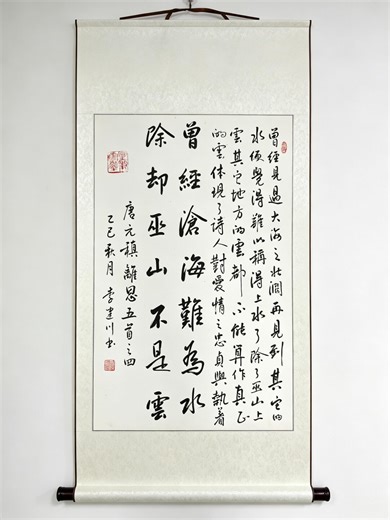 曾經見過大海之壯闊再見到其它的
水便覺得難以稱得上水了除了巫山上
雲其它地方的雲都不能算作真正
的雲体現了詩人對愛情之忠貞與執著
曾經滄海難為水
除却巫山不是雲
唐元稹離思五首之四
乙巳秋月李建川书